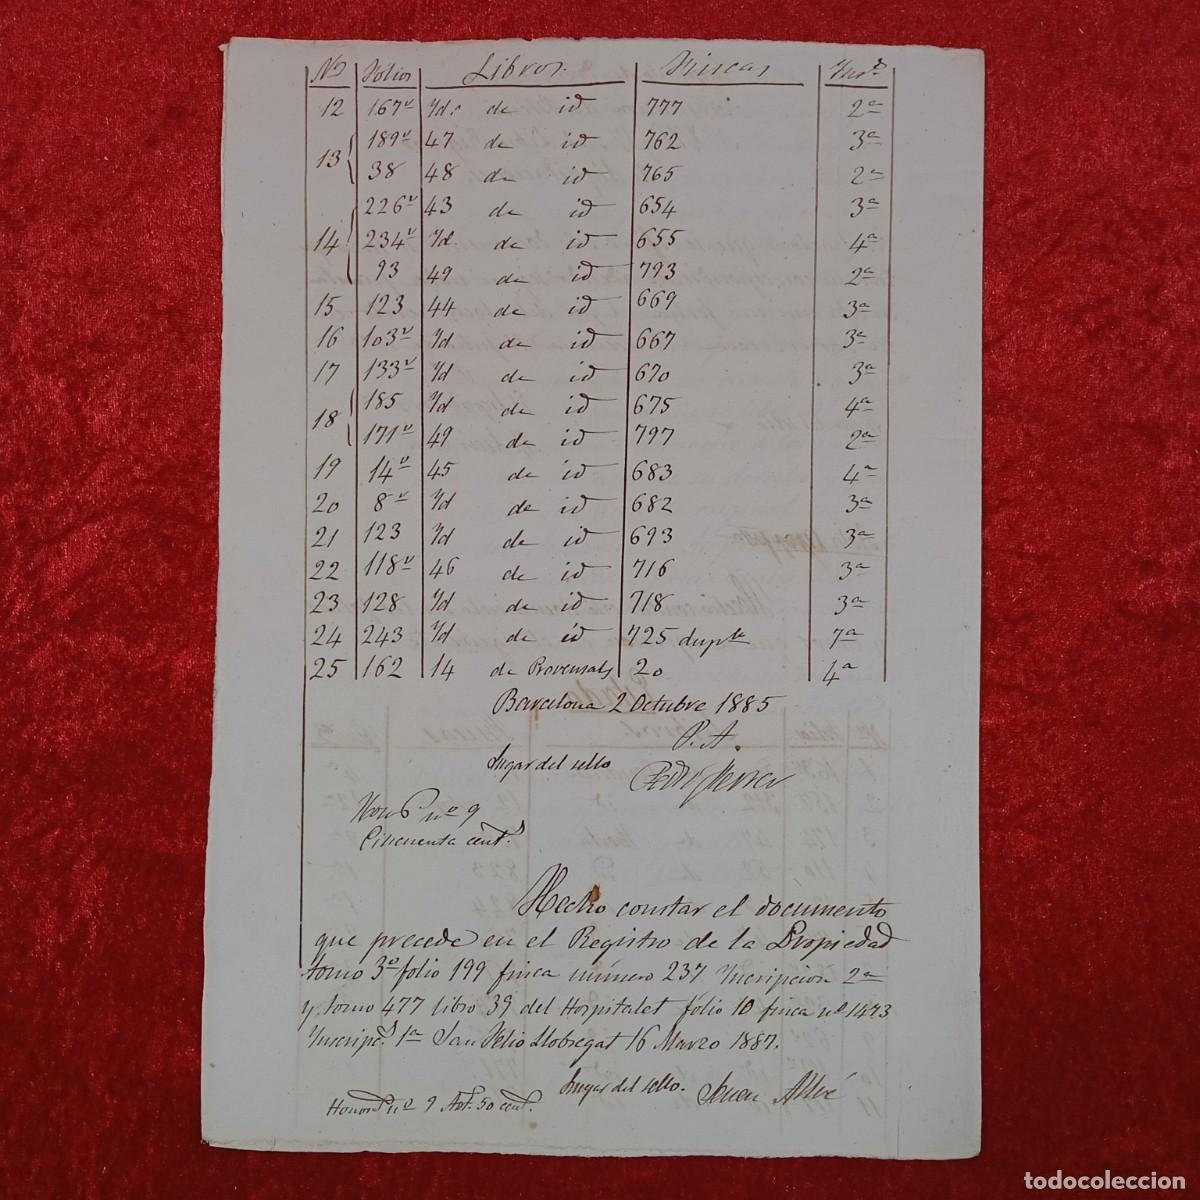 Nos Folios Libros. Fincas Insc.
12 167v Yd. de id 777 2a
13 189v 47 de id 762 3a
38 48 de id 765 2a
226v 43 de id 654 3a
14 234v Yd. de id 655 4a
93 49 de id 793 2a
15 123 44 de id 669 3a
16 103v Yd de id 667 3a
17 133v Yd de id 670 3a
18 185 Yd de id 675 4a
171v 49 de id 797 2a
19 14v 45 de id 683 4a
20 8v Yd de id 682 3a
21 123 Yd de id 693 3a
22 118v 46 de id 716 3a
23 128 Yd de id 718 3a
24 243 Yd de id 725 dupdo 7a
25 162 14 de Provensals 20 4a
Barcelona 2 Octubre 1885
P. A.
Lugar del sello
nº 9
Cincuenta cent.s
Hecho constar el documento
que precede en el Registro de la Propiedad
tomo 3º folio 199 finca número 237 Inscripcion 2a
y tomo 477 libro 39 del Hospitalet folio 10 finca nº 1473
Inscripc. 1a San Felio Llobregat 16 Marzo 1887.
Lugar del sello. Juan
Honors nº 9 50 cent.
todocoleccion